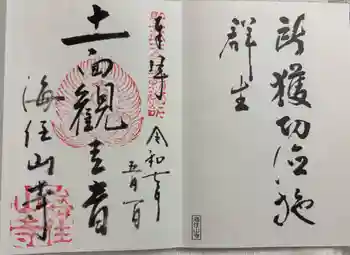 所獲功徳施
群生
奉拝
令和七年
五月一日
十一面観世音
海住山寺
海住山寺